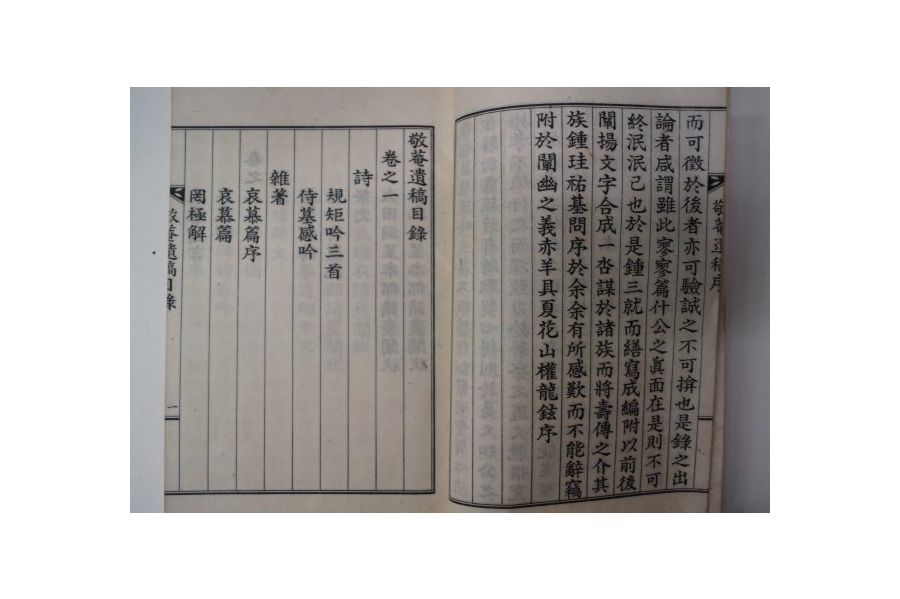 敬菴遺稿序
而可徵於後者亦可驗誠之不可揜也是錄之出
論者咸謂雖此寥寥篇什公之眞面在是則不可
終泯泯已也於是鍾三就而繕寫成編附以前後
闡揚文字合成一呇謀於諸族而將壽傳之介其
族鍾珪祐基問序於余余有所感歎而不能辭竊
附於闡幽之義赤羊具夏花山權龍鉉序
敬菴遺稿目錄
卷之一
詩
規矩吟三首
侍墓感吟
雜著
哀慕篇序
哀慕篇
罔極解
敬菴遺稿目錄
一